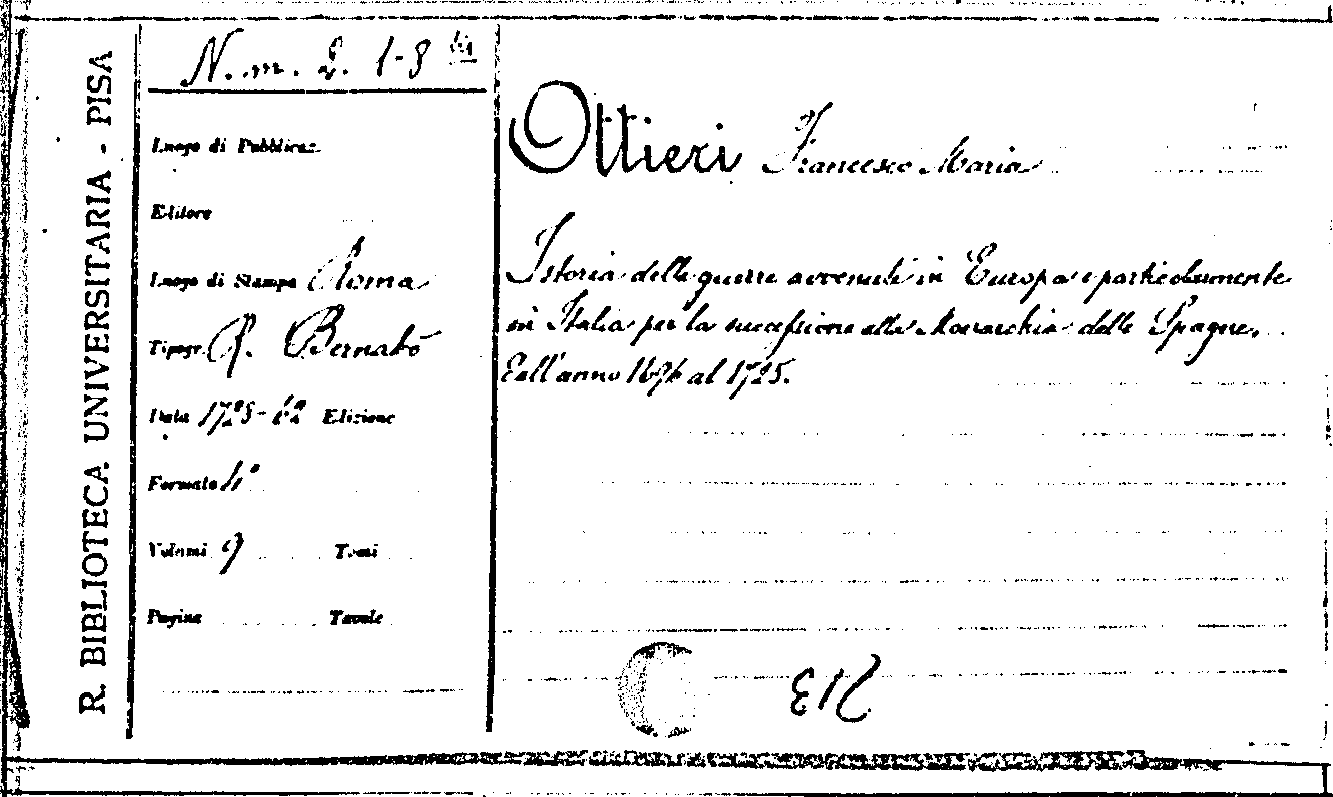 R. BIBLIOTECA UNIVERSITARIA - PISA
N. m. 2. 1-8 bis
Luogo di Pubblicaz.
Editore
Luogo di Stampa Roma
Tipogr. R. Bernabò
Data 1728-62 Edizione
Formato 4°
Volumi 9 Tomi
Pagine Tavole
Ottieri Francesco Maria
Istoria delle guerre avvenute in Europa e particolarmente
in Italia per la successione alla Monarchia delle Spagne,
Dall'anno 1696 al 1725.
213